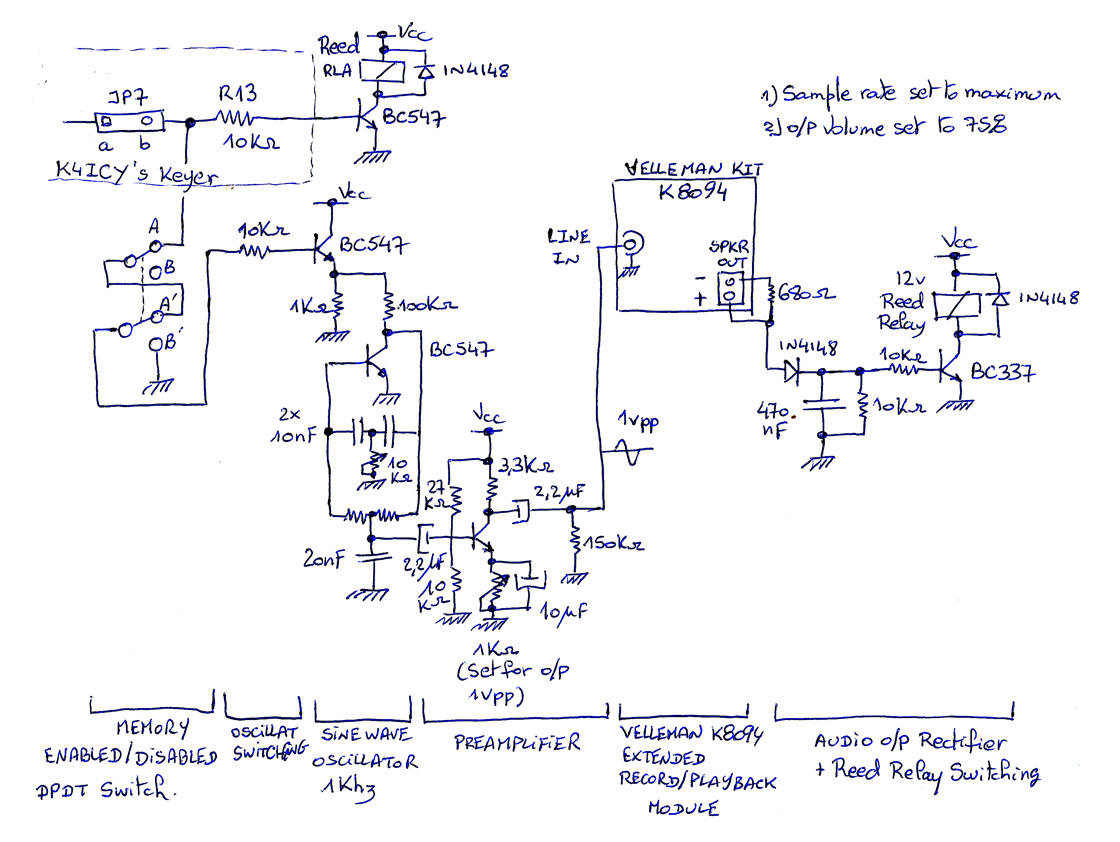 Vcc
Reed
RLA
1N4148
JP7
R13
BC547
a b
10KΩ
K4ICY's Keyer
1) Sample rate set to maximum
2) O/P volume set to 75%
VELLEMAN KIT
K8094
LINE
IN
SPKR
OUT
-
+
680Ω
Vcc
12v
Reed
Relay
1N4148
1N4148
10KΩ
BC337
470
nF
10KΩ
A
B
A'
B'
10KΩ
Vcc
BC547
1KΩ
100KΩ
BC547
2x
10nF
10
KΩ
Vcc
27
KΩ
3,3KΩ
2,2µF
1Vpp
150KΩ
20nF
2,2µF
10
KΩ
10µF
1KΩ
(Set for o/p
1Vpp)
MEMORY
ENABLED/DISABLED
DPDT Switch.
OSCILLAT
SWITCHING
SINE WAVE
OSCILLATOR
1Khz
PREAMPLIFIER
VELLEMAN K8094
EXTENDED
RECORD/PLAYBACK
MODULE
AUDIO O/P Rectifier
+ Reed Relay Switching